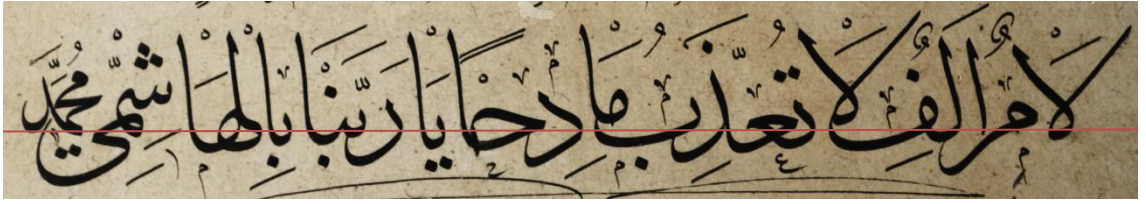 لَامُ اَلِفُ لَا تُعَذِّبْ مَادِحًا يَا رَبَّنَا بِالْهَاشِمِيِّ مُحَمَّدِ